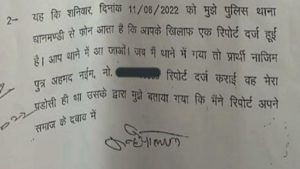 2- यह कि शनिवार, दिनांक 11/06/2022 को मुझे पुलिस थाना
धानमण्डी से फोन आता है कि आपके खिलाफ एक रिपोर्ट दर्ज हुई
है। आप थाने में आ जाओ। जब मैं थाने में गया तो प्रार्थी नाजिम
पुत्र अहमद नईम, नो. रिपोर्ट दर्ज कराई वह मेरा
पडोसी ही था उसके द्वारा मुझे बताया गया कि मैंने रिपोर्ट अपने
022 समाज के दबाव में